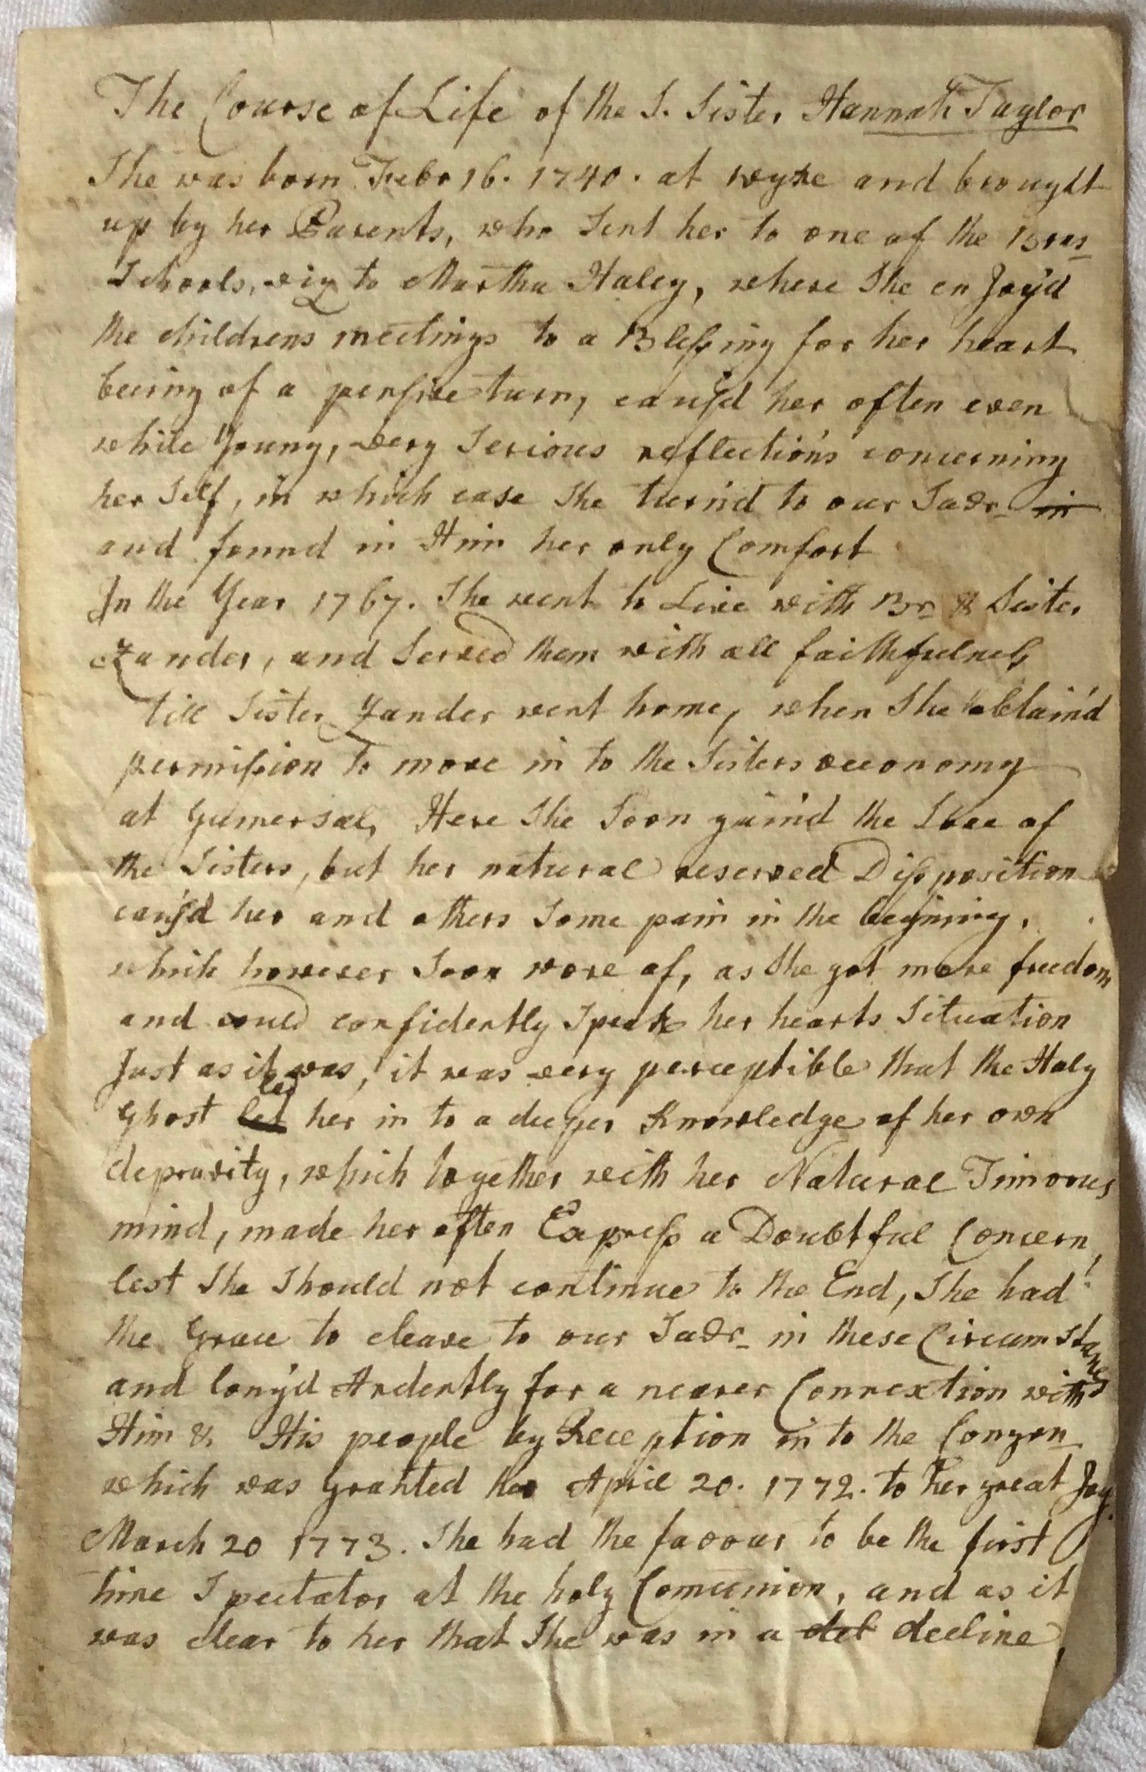 The Course of Life of the S. Sister Hannah Taylor
She was born Febr 16. 1740. at wyke and brought
up by her Parents, who Sent her to one of the Brns
Schools, viz to Martha Haley, where She en Joy'd
the childrens meetings to a Blessing for her heart
beeing of a pensive turn, caus'd her often even
while Young, very Serious reflections concerning
her Self, in which case She turn'd to our Savr in
and found in Him her only Comfort
In the Year 1767. She went to Live with Br & Sister
Zander, and Served them with all faithfulness
till Sister Zander went home, when She obtain'd
permission to move in to the Sisters oeconomy
at Gumersal, Here She Soon gain'd the Love of
the Sisters, but her natural reserved Dissposition
caus'd her and others Some pain in the begining,
which however Soon wore of, as She got more freedom
and could confidently Speak her hearts Situation
Just as it was, it was very perceptible that the Holy
Ghost let led her in to a deeper Knowledge of her own
depravity, which together with her Natural Timorus
mind, made her often Express a Doubtful Concern,
lest She Should not continue to the End, She had
the Grace to cleave to our Savr in these Circumstances
and long'd Ardently for a nearer Connextion with
Him & His people by Reception in to the Congon
which was granted her April 20. 1772. to her great Joy.
March 20 1773. She had the favour to be the first
time Spectator at the holy Comunion, and as it
was clear to her that She was in a del decline